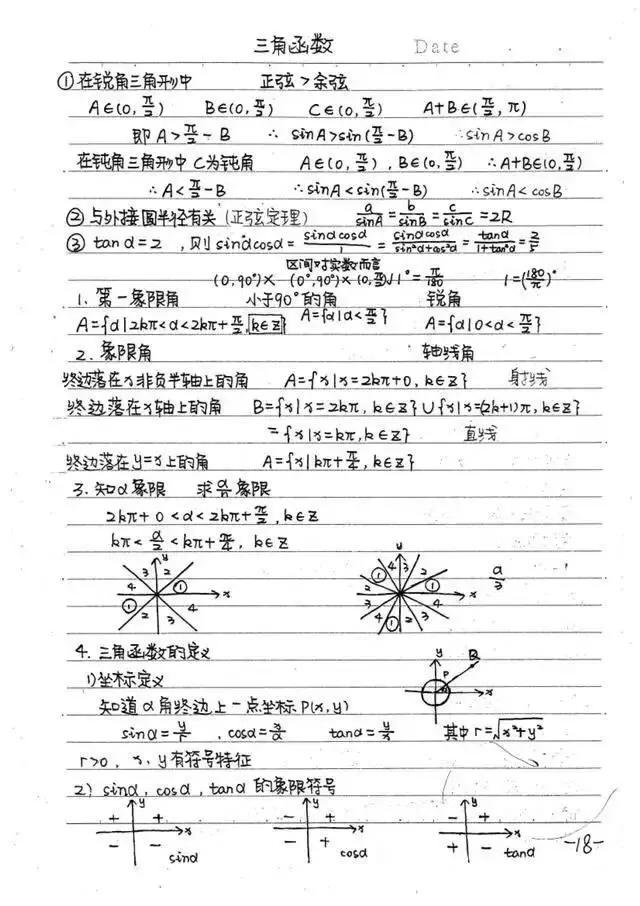 三角函数 Date
①在锐角三角形中 正弦>余弦
A∈(0,π/2) B∈(0,π/2) C∈(0,π/2) A+B∈(π/2,π)
即A>π/2-B ∴sinA>sin(π/2-B) ∴sinA>cosB
在钝角三角形中C为钝角 A∈(0,π/2),B∈(0,π/2) ∴A+B∈(0,π/2)
∴A<π/2-B ∴sinA<sin(π/2-B) ∴sinA<cosB
②与外接圆半径有关(正弦定理) a/sinA=b/sinB=c/sinC=2R
③tanα=2,则sinαcosα=sinαcosα/1=sinαcosα/(sin²α+cos²α)=tanα/(1+tan²α)=2/5
区间对实数而言
(0,90°)× (0°,90°)× (0,π/2)√ 1°=π/180 1=(180/π)°
1.第一象限角 小于90°的角 锐角
A={α|2kπ<α<2kπ+π/2,k∈Z} A={α|α<π/2} A={α|0<α<π/2}
2.象限角 轴线角
终边落在x非负半轴上的角 A={x|x=2kπ+0,k∈Z} 射线
终边落在x轴上的角 B={x|x=2kπ,k∈Z}∪{x|x=(2k+1)π,k∈Z}
={x|x=kπ,k∈Z} 直线
终边落在y=x上的角 A={x|kπ+π/4,k∈Z}
3.知α象限 求α/n象限
2kπ+0<α<2kπ+π/2,k∈Z
kπ<α/2<kπ+π/4,k∈Z
y y
3 2 4 3 2
4 ① x ① ① x a/3
① 4 3 4
2 3 2 4 ① 2 3
4.三角函数的定义
1)坐标定义 y P x
知道α角终边上一点坐标P(x,y)
sinα=y/r,cosα=x/r tanα=y/x 其中r=√(x²+y²)
r>0,x,y有符号特征
2)sinα,cosα,tanα的象限符号
y y y
+ + - + - +
x x x
- - - + + -
sinα cosα tanα
-18-